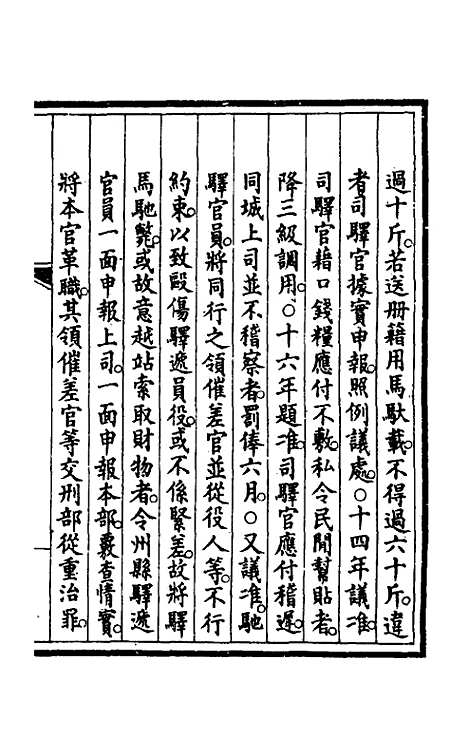 過十斤。若送册籍用馬馱載。不得過六十斤。違
者司驛官據實申報。照例議處。○十四年議准。
司驛官藉口錢糧應付不敷。私令民閒幫貼者。
降三級調用。○十六年題准。司驛官應付稽遲。
同城上司並不稽察者。罰俸六月。○又議准。馳
驛官員。將同行之領催差官並從役人等。不行
約束。以致毆傷驛遞員役。或不係緊差。故將驛
馬馳斃。或故意越站索取財物者。令州縣驛遞
官員一面申報上司。一面申報本部。覈查情實。
將本官革職。其領催差官等交刑部從重治罪。